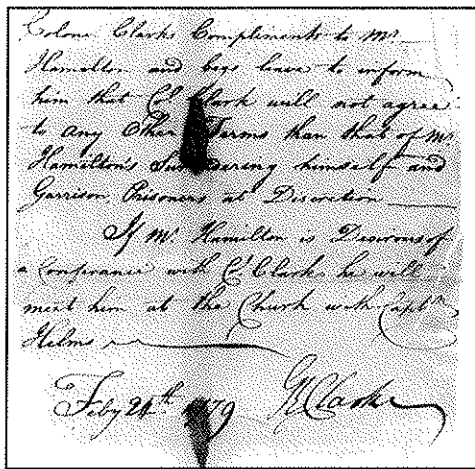 Colone Clarks Compliments to Mr
Hamelton and begs leave to inform
him that Col. Clark will not agree
to any Other Terms than that of Mr
Hamelton's Surendering himself and
Garrison, Prisoners at Discretion
If Mr Hamilton is Desirous of
a Conferance with Col Clark he will
meet him at the Church with Captn
Helms
Feby 24th 1779 GR Clark